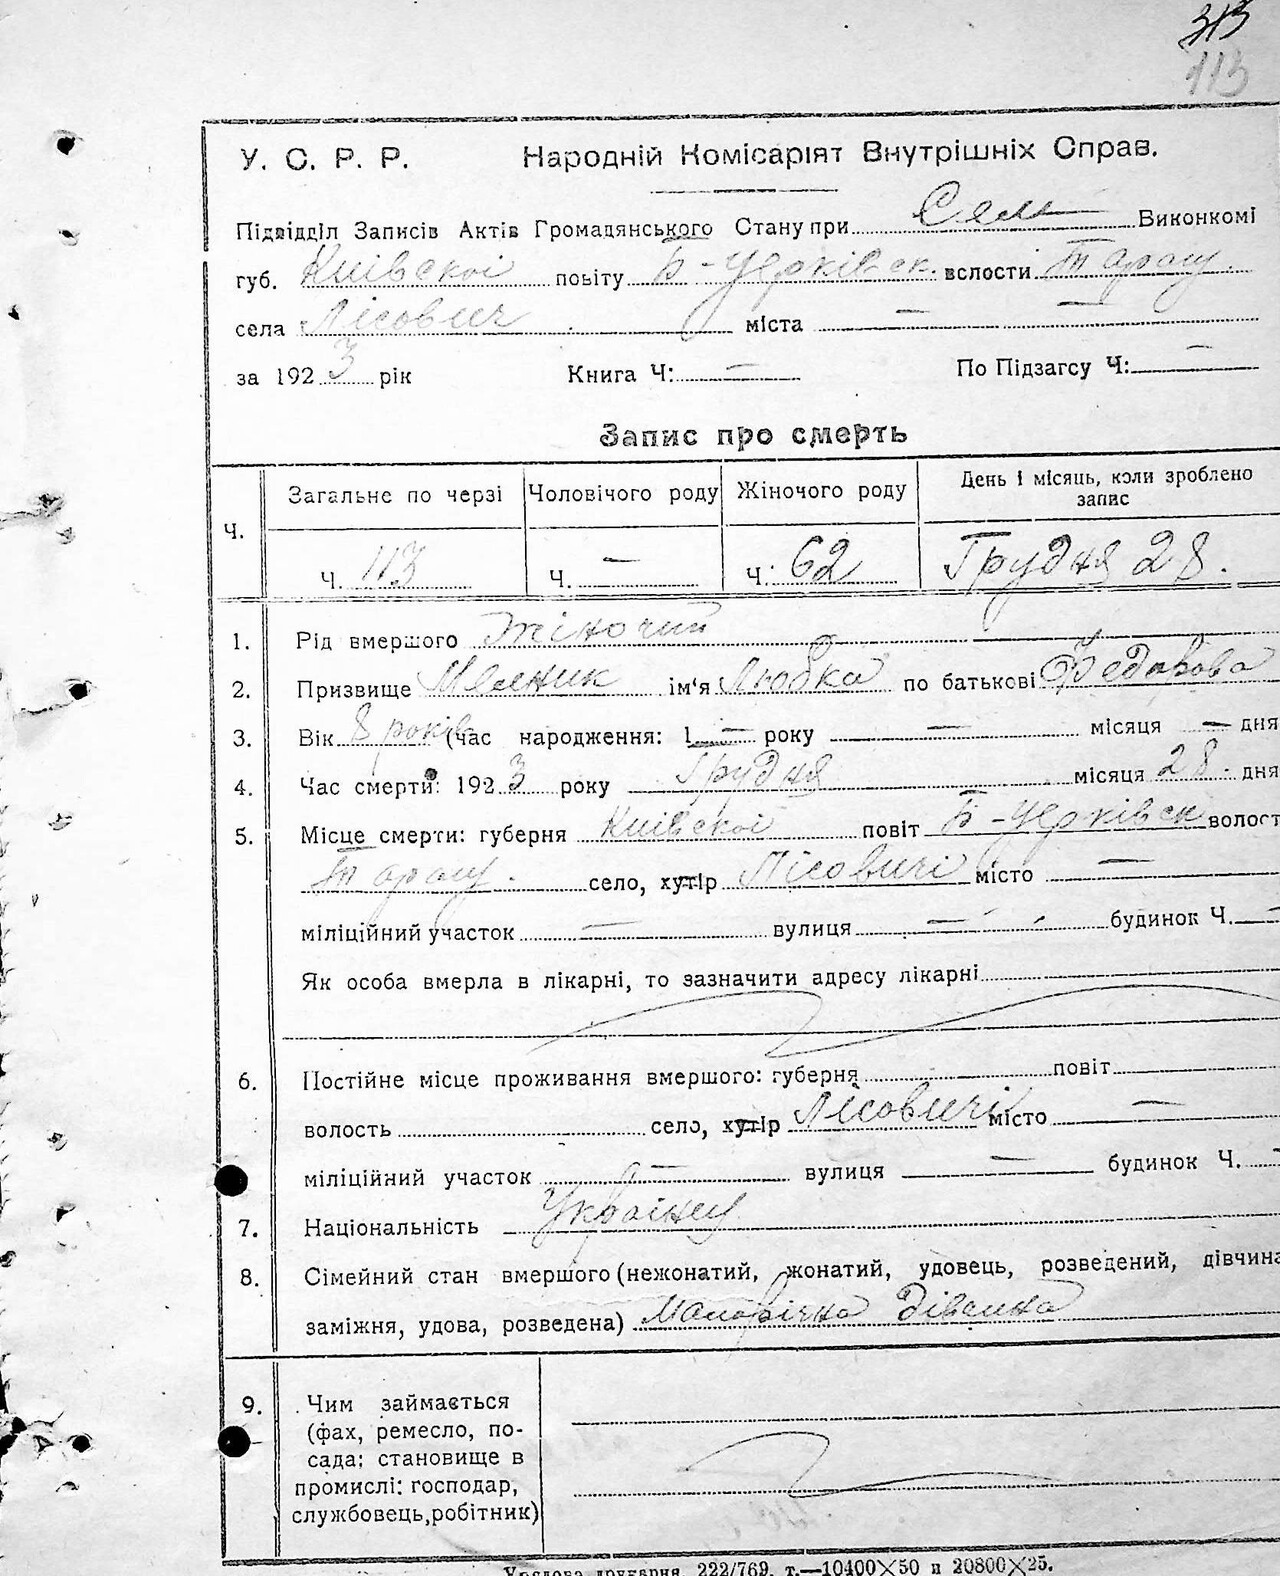 313
113
У. С. Р. Р. Народній Комісаріят Внутрішніх Справ.
Підвідділ Записів Актів Громадянського Стану при Сель Виконкомі
губ. Київскої повіту Б-Церківськ. вслости Таращ.
села Лісович міста —
за 1923 рік Книга Ч: — По Підзагсу Ч: —
Запис про смерть
Ч. Загальне по черзі Чоловічого роду Жіночого роду День і місяць, коли зроблено запис
Ч. 113 Ч. — Ч. 62 Грудня 28.
1. Рід вмершого Жіночий
2. Призвище Мельник ім'я Любка по батькові Федорова
3. Вік 8 років (час народження: 1 — року — місяця — дня
4. Час смерти: 1923 року Грудня місяця 28 дня
5. Місце смерти: губерня Київскої повіт Б-Церківськ волост
Таращ. село, хутір Лісовичі місто —
міліційний участок — вулиця — будинок Ч. —
Як особа вмерла в лікарні, то зазначити адресу лікарні
6. Постійне місце проживання вмершого: губерня повіт
волость село, хутір Лісовичі місто —
міліційний участок — вулиця — будинок Ч. —
7. Національність
8. Сімейний стан вмершого (нежонатий, жонатий, удовець, розведений, дівчина
заміжня, удова, розведена) Малолічна дівчина
9. Чим займається
(фах, ремесло, по-
сада; становище в
промислі: господар,
службовець, робітник)
Урядова друкарня 222/769. т.—10400×50 и 20800×25.